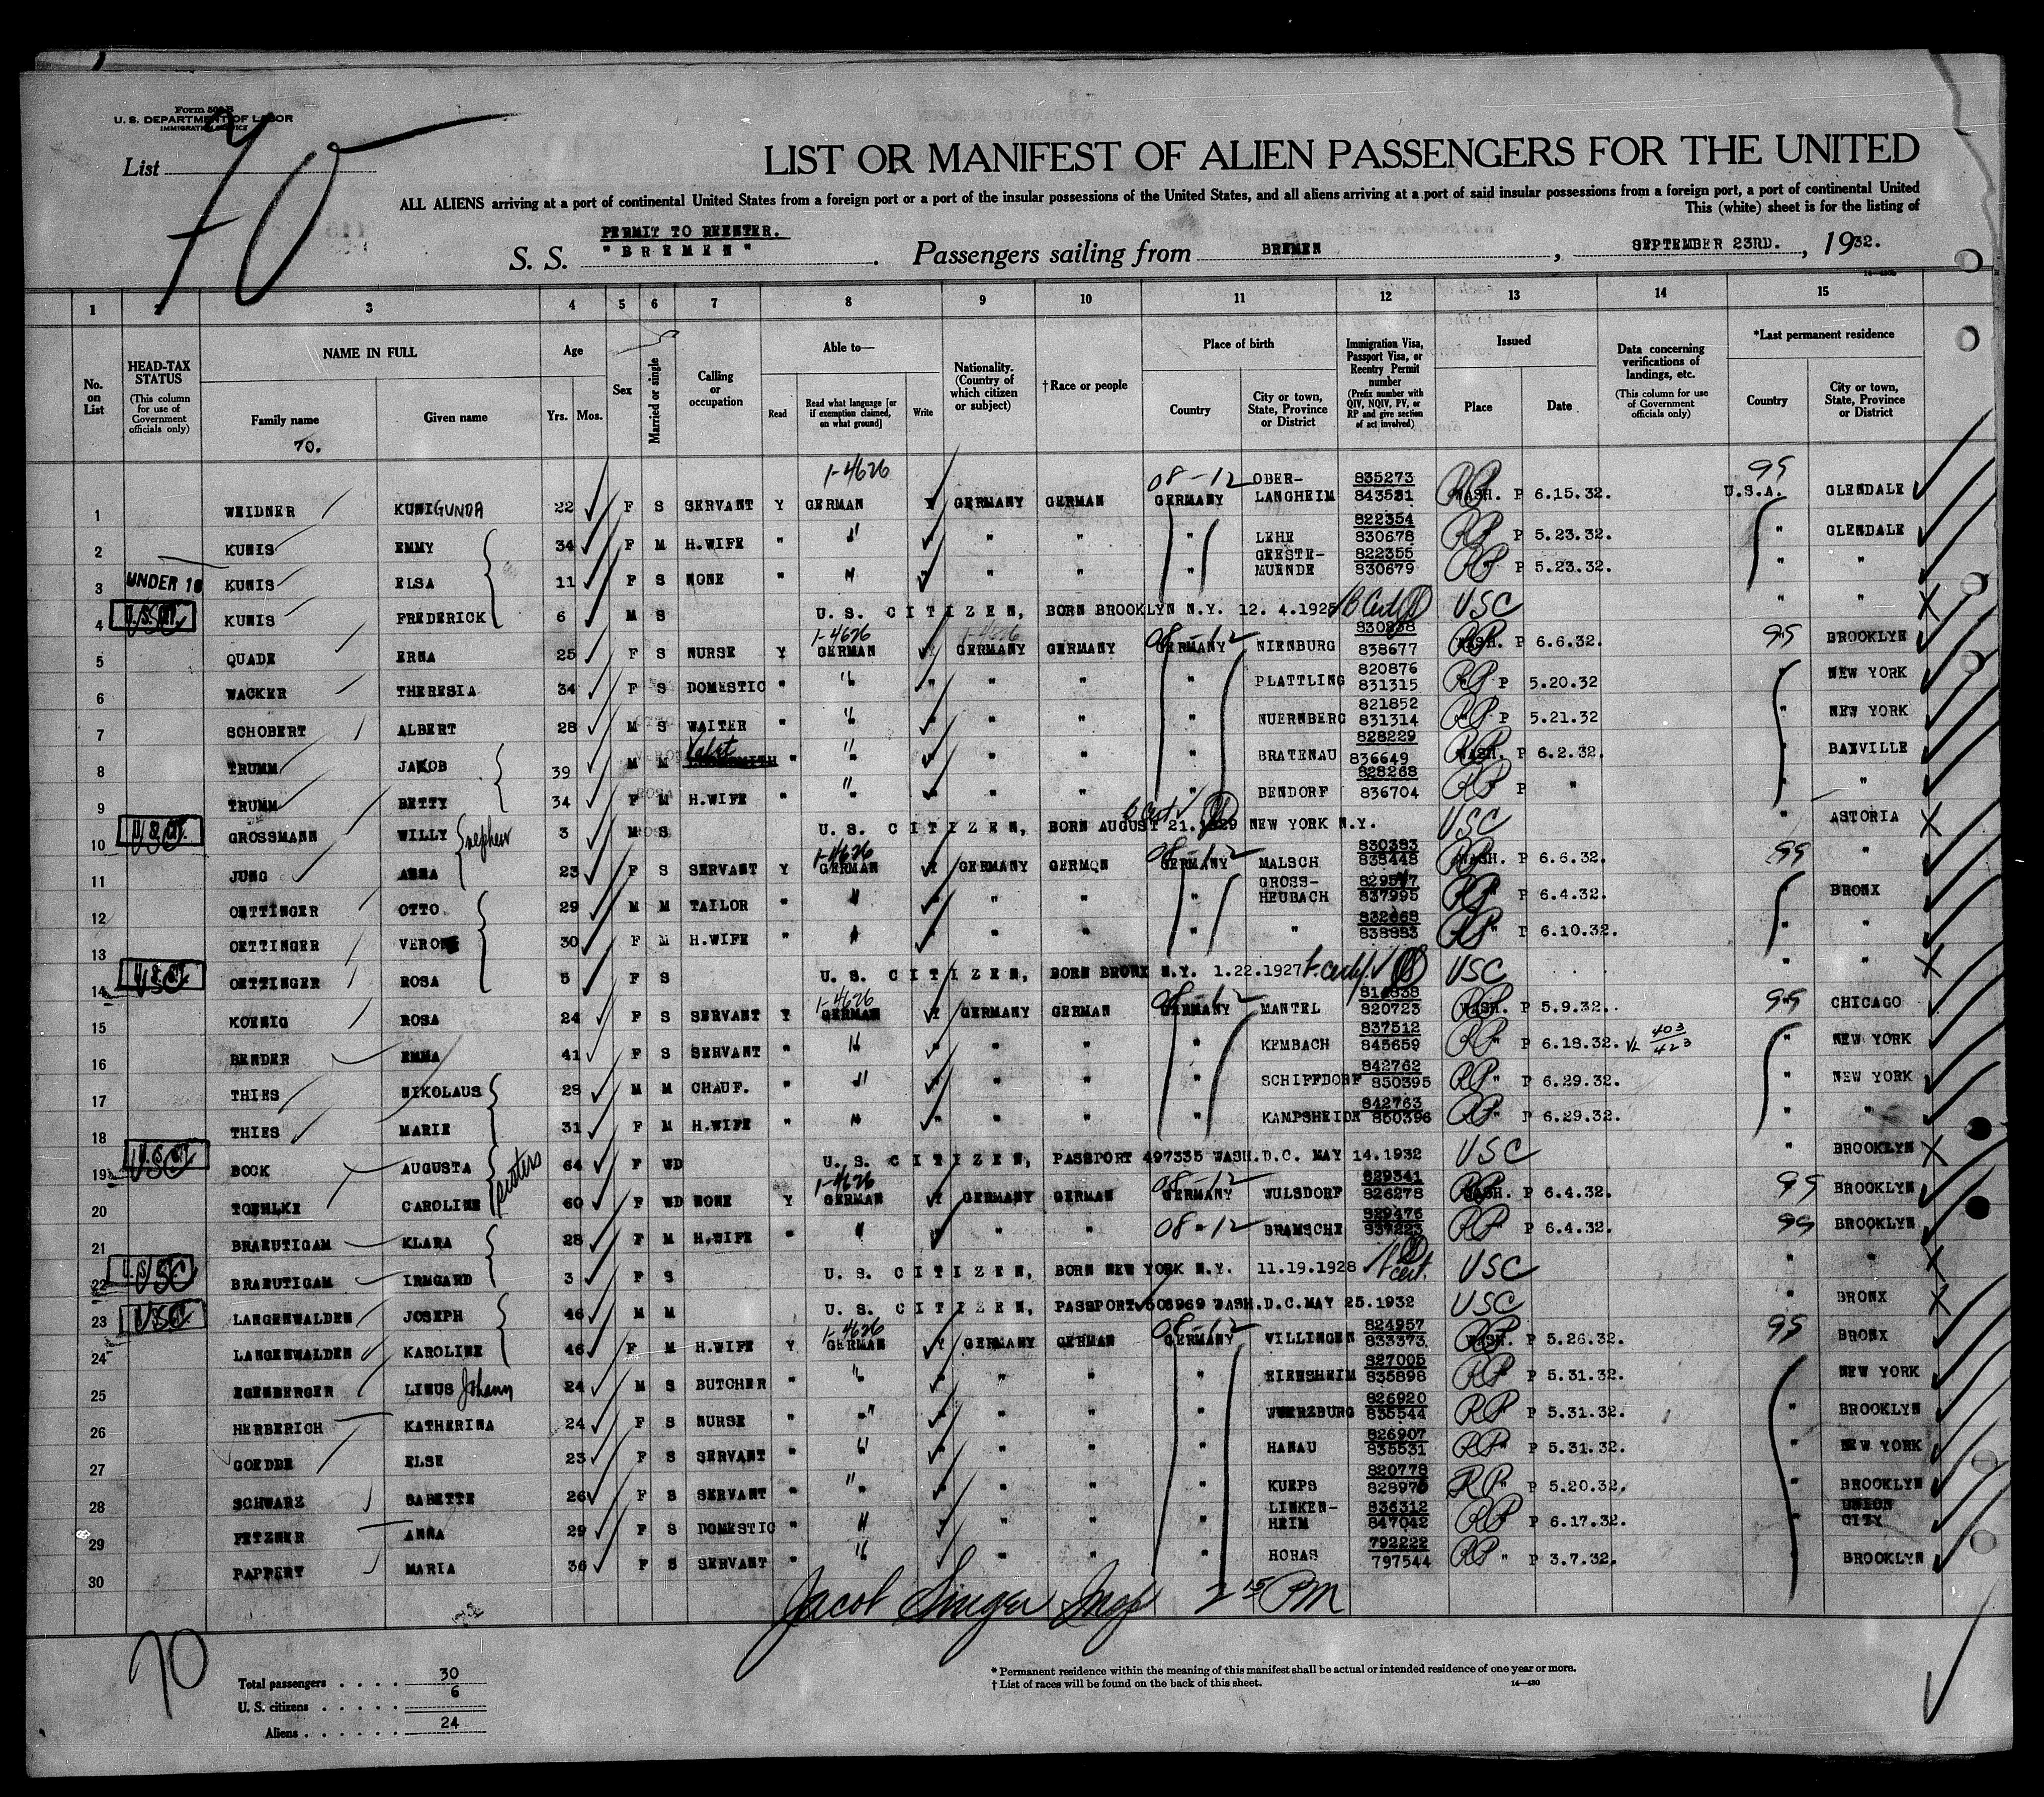 Form 500 B
U. S. DEPARTMENT OF LABOR
IMMIGRATION SERVICE
List 70
LIST OR MANIFEST OF ALIEN PASSENGERS FOR THE UNITED
ALL ALIENS arriving at a port of continental United States from a foreign port or a port of the insular possessions of the United States, and all aliens arriving at a port of said insular possessions from a foreign port, a port of continental United
This (white) sheet is for the listing of
PERMIT TO REENTER.
S. S. "BREMEN" Passengers sailing from BREMEN, SEPTEMBER 23RD., 1932.
14—430b
1 2 3 4 5 6 7 8 9 10 11 12 13 14 15
No. on List
HEAD-TAX STATUS (This column for use of Government officials only)
NAME IN FULL Family name Given name
70.
Age Yrs. Mos.
Sex
Married or single
Calling or occupation
Able to— Read Read what language [or if exemption claimed, on what ground] Write
Nationality. (Country of which citizen or subject)
†Race or people
Place of birth Country City or town, State, Province or District
Immigration Visa, Passport Visa, or Reentry Permit number (Prefix number with QIV, NQIV, PV, or RP and give section of act involved)
Issued Place Date
Data concerning verifications of landings, etc. (This column for use of Government officials only)
*Last permanent residence Country City or town, State, Province or District
1 WEIDNER KUNIGUNDA 22 F S SERVANT Y 1-4626 GERMAN Y GERMANY GERMAN 08-12 GERMANY OBER-LANGHEIM 835273 843531 RP WASH. P 6.15.32. 99 U.S.A. GLENDALE
2 KUNIS EMMY 34 F M H.WIFE " " " " " " LEHE 822354 830678 RP P 5.23.32. " GLENDALE
3 UNDER 16 KUNIS ELSA 11 F S NONE " " " " " GEESTE-MUENDE 822355 830679 RP P 5.23.32. " "
4 U.S. CIT. USC KUNIS FREDERICK 6 M S U. S. CITIZEN, BORN BROOKLYN N.Y. 12. 4.1925 B Cert USC " "
5 QUADE ERNA 25 F S NURSE Y 1-4626 GERMAN Y GERMANY GERMANY 08-12 GERMANY NIENBURG 830238 838677 RP WASH. P 6.6.32. 99 BROOKLYN
6 WACKER THERESIA 34 F S DOMESTIC " " " " " " PLATTLING 820876 831315 RP P 5.20.32 " NEW YORK
7 SCHOBERT ALBERT 28 M S WAITER " " " " " " NUERNBERG 821852 831314 RP P 5.21.32 " NEW YORK
8 TRUMM JAKOB 39 M M Valet " " " " " " BRATENAU 828229 836649 RP WASH. P 6.2.32. " BAXVILLE
9 TRUMM BETTY 34 F M H.WIFE " " " " " " BENDORF 828268 836704 RP P " " "
10 U.S. CIT. USC GROSSMANN WILLY nephew 3 M S U. S. CITIZEN, BORN AUGUST 21.1929 NEW YORK N.Y. B Cert USC " ASTORIA
11 JUNG ANNA 23 F S SERVANT Y 1-4626 GERMAN Y GERMANY GERMAN 08-12 GERMANY MALSCH 830383 838448 RP WASH. P 6.6.32. 99 "
12 OETTINGER OTTO 29 M M TAILOR " " " " " " GROSS-HEUBACH 837995 RP P 6.4.32. " BRONX
13 OETTINGER 30 F M H.WIFE " " " " " " " 832868 838883 RP P 6.10.32. " "
14 U.S. CIT. USC OETTINGER ROSA 5 F S U. S. CITIZEN, BORN BRONX N.Y. 1.22.1927 USC " "
15 KOENIG ROSA 24 F S SERVANT Y 1-4626 GERMAN Y GERMANY GERMAN 08-12 GERMANY MANTEL 820723 RP WASH. P 5.9.32. 99 CHICAGO
16 BENDER EMMA 41 F S SERVANT " " " " " " KEMBACH 837512 845659 RP P 6.18.32. VL 403 423 " NEW YORK
17 THIES NIKOLAUS 28 M M CHAUF. " " " " " " SCHIFFDORF 842762 850395 RP P 6.29.32. " NEW YORK
18 THIES MARIE 31 F M H.WIFE " " " " " " KAMPSHEIDE 842763 850396 RP P 6.29.32. " "
19 U.S. CIT. USC BOCK AUGUSTA sisters 64 F WD U. S. CITIZEN, PASSPORT 497335 WASH.D.C. MAY 14.1932 USC " BROOKLYN
20 TOEHLKE CAROLINE 60 F WD NONE Y 1-4626 GERMAN Y GERMANY GERMAN 08-12 GERMANY WULSDORF 829341 826278 RP WASH. P 6.4.32. 99 BROOKLYN
21 BRAEUTIGAM KLARA 28 F M H.WIFE " " " " " 08-12 BRAMSCHE 829476 837223 RP P 6.4.32. 99 BROOKLYN
22 USC BRAEUTIGAM IRMGARD 3 F S U. S. CITIZEN, BORN NEW YORK N.Y. 11.19.1928 cert. USC " "
23 USC LANGENWALDEN JOSEPH 46 M M U. S. CITIZEN, PASSPORT 503969 WASH.D.C.MAY 25.1932 USC " BRONX
24 LANGENWALDEN KAROLINE 46 F M H.WIFE Y 1-4626 GERMAN Y GERMANY GERMAN 08-12 GERMANY VILLINGEN 824957 833373. RP WASH. P 5.26.32. 99 BRONX
25 EGENBERGER LINUS Johann 24 M S BUTCHER " " " " " " EIRESHEIM 827005 835898 RP P 5.31.32. " NEW YORK
26 HERBERICH KATHERINA 24 F S NURSE " " " " " " WUERZBURG 826920 835544 RP P 5.31.32. " BROOKLYN
27 GOEDDE ELSE 23 F S SERVANT " " " " " " HANAU 826907 835531 RP P 5.31.32. " NEW YORK
28 SCHWARZ BABETTE 26 F S SERVANT " " " " " " KUEPS 820778 828976 RP P 5.20.32. " BROOKLYN
29 FETZNER ANNA 29 F S DOMESTIC " " " " " " LINKEN-HEIM 836312 847042 RP P 6.17.32. " UNION CITY
30 PAPPERT MARIA 36 F S SERVANT " " " " " " HORAS 792222 797544 RP " P 3.7.32. BROOKLYN
Jacob Singer Insp 2 15 PM
70
Total passengers . . . . 30
U. S. citizens . . . . . 6
Aliens . . . . . . 24
* Permanent residence within the meaning of this manifest shall be actual or intended residence of one year or more.
† List of races will be found on the back of this sheet.
14—430